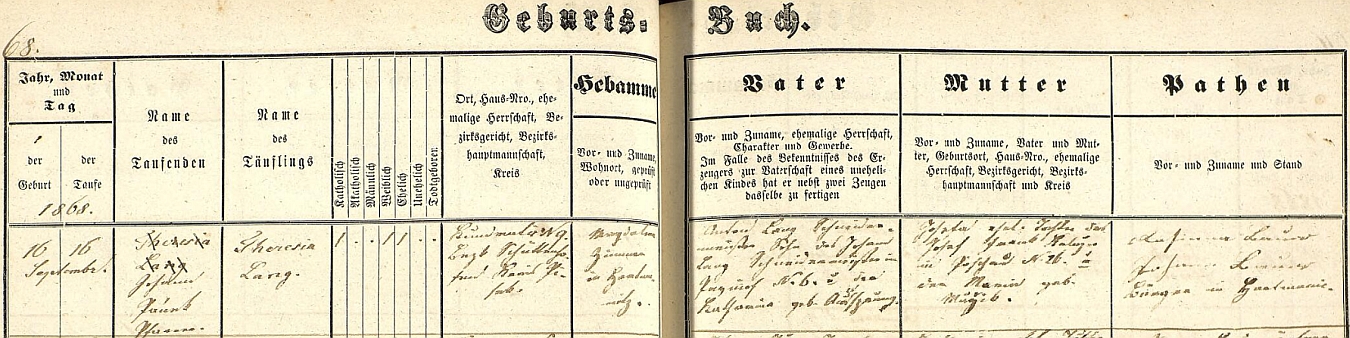 Geburts- Buch.
68.
Jahr, Monat
und
Tag
1
der
Geburt
der
Taufe
1868.
Name
des
Taufenden
Name
des
Täuflings
Katholisch
Akatholisch
Männlich
Weiblich
Ehelich
Unehelich
Todtgeboren
Ort, Haus-Nro., ehe-
malige Herrschaft, Be-
zirksgericht, Bezirks-
hauptmannschaft,
Kreis
Hebamme
Vor- und Zuname,
Wohnort, geprüft
oder ungeprüft
Vater
Vor- und Zuname, ehemalige Herrschaft,
Charakter und Gewerbe.
Im Falle des Bekenntnisses des Er-
zeugers zur Vaterschaft eines uneheli-
chen Kindes hat er nebst zwei Zeugen
dasselbe zu fertigen
Mutter
Vor- und Zuname, Vater und Mut-
ter, Geburtsort, Haus-Nro., ehemalige
Herrschaft, Bezirksgericht, Bezirks-
hauptmannschaft und Kreis
Pathen
Vor- und Zuname und Stand
16
16
September.
Theresia
Lang
Johann
Pfarrer.
Theresia
Lang.
1 . . 1 1 . .
Bez. Schütten-
hofen Kreis Pi-
sek.
Magdalena
Zimmer
in Hartma-
nitz.
Anton Lang Schneider-
meister Sohn des Johann
Lang Schneidermeister in
N. 6. u der
Katharina geb.
Josefa ehel. Tochter des
Josef
in N. 26. u
der Maria geb.
Johann
Bürger in Hartmanic.